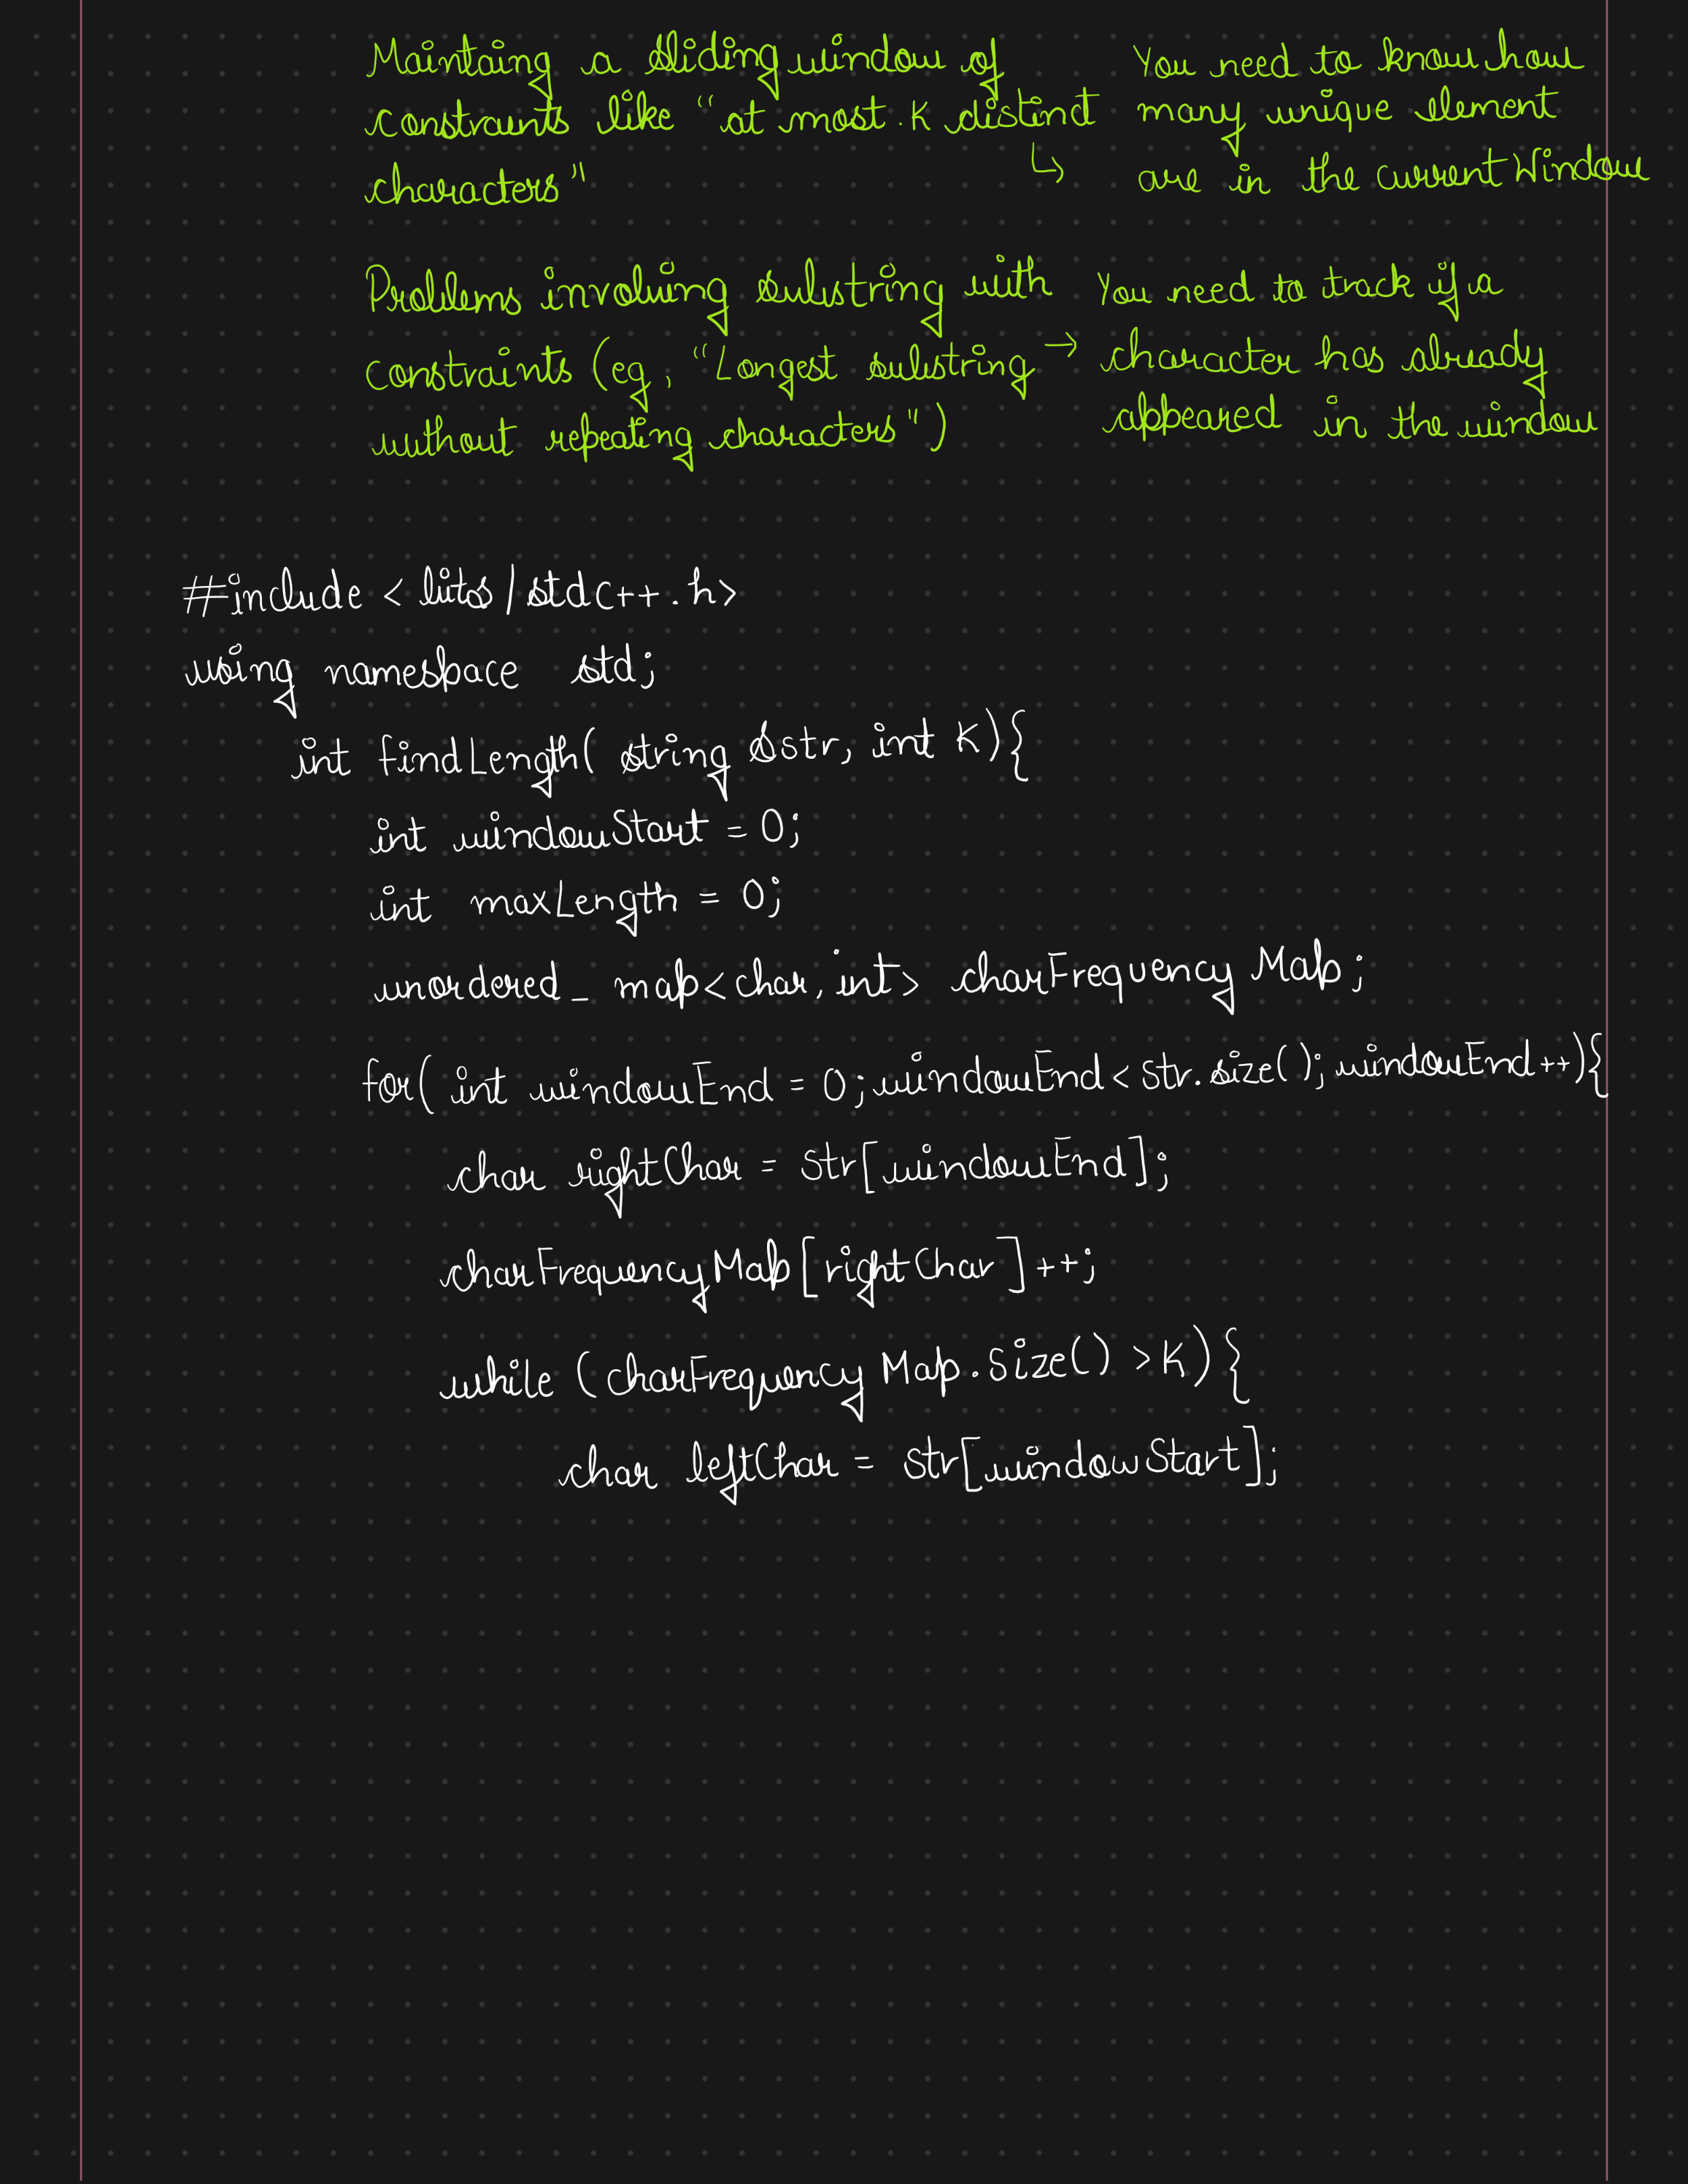 Maintaing a sliding window of
constraints like "at most K distinct
characters"
↳ You need to know how
many unique element
are in the current Window
Problems involving substring with
constraints (eg, "Longest substring
without repeating characters")
→ You need to track if a
character has already
appeared in the window
#include <bits/stdc++.h>
using namespace std;
int findLength( string &str, int K){
int windowStart = 0;
int maxLength = 0;
unordered_ map<char, int> charFrequency Map;
for( int windowEnd = 0; windowEnd < str.size(); windowEnd++){
char rightChar = str[windowEnd];
charFrequencyMap[rightChar]++;
while (charFrequency Map.size() >K){
char leftChar = str[windowStart];